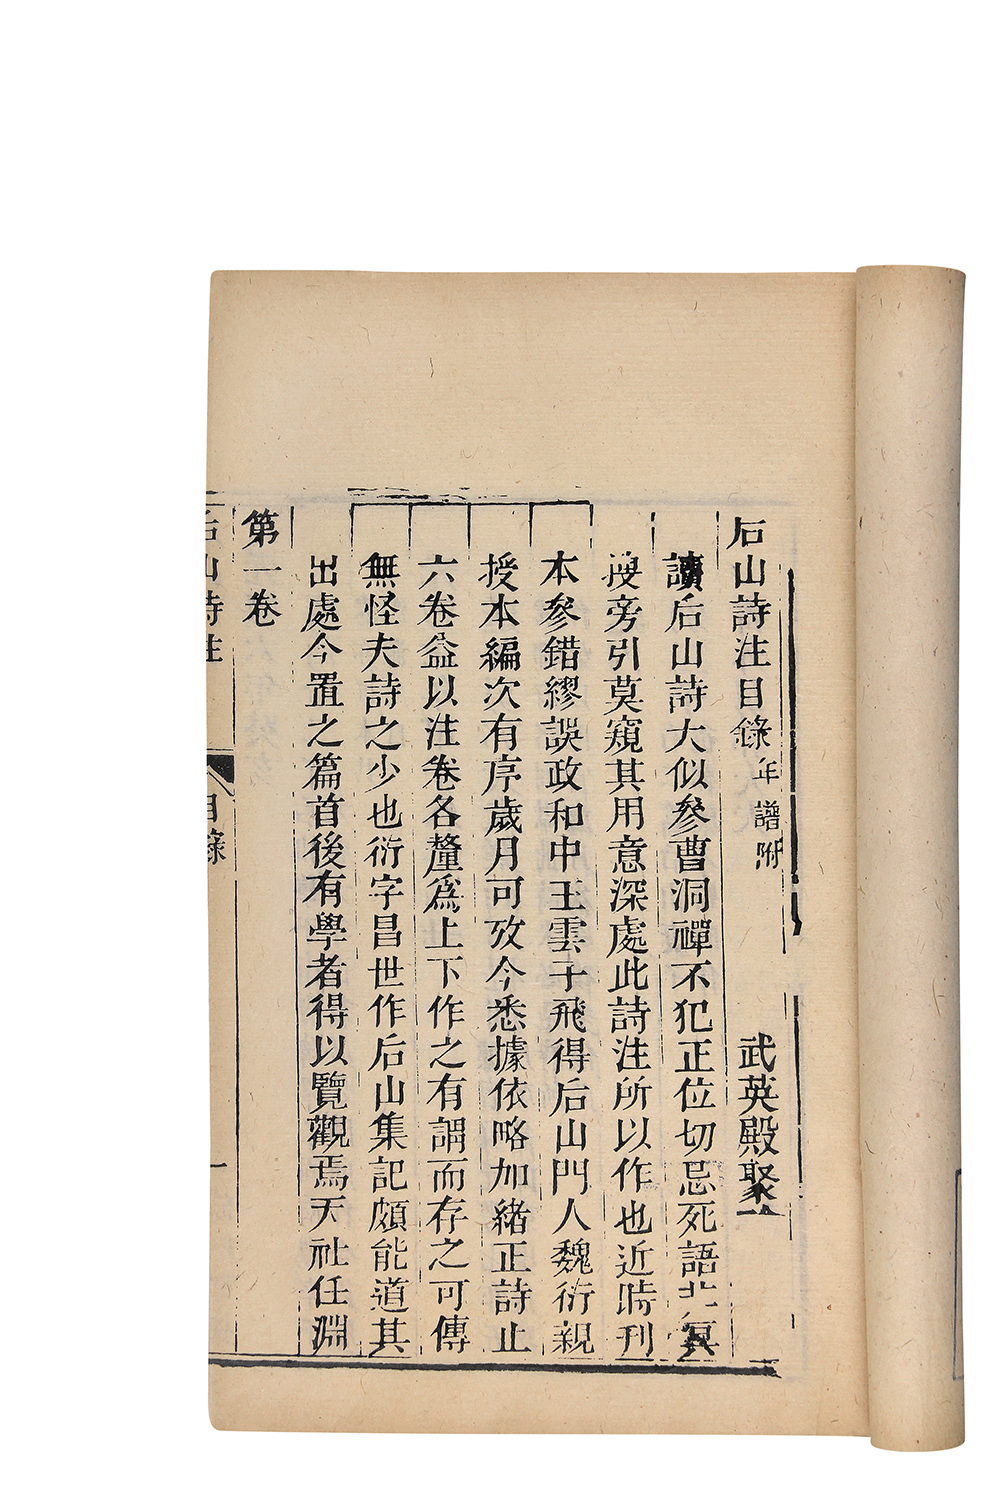 后山詩注目錄年譜附 武英殿聚
讀后山詩大似參曹洞禪不犯正位切忌死語非冥
搜旁引莫窺其用意深處此詩注所以作也近時刊
本參錯繆誤政和中王雲子飛得后山門人魏衍親
授本編次有序歲月可攷今悉據依略加緒正詩止
六卷益以注卷各釐爲上下作之有謂而存之可傳
無怪夫詩之少也衍字昌世作后山集記頗能道其
出處今置之篇首後有學者得以覽觀焉天社任淵
第一卷
后山詩注 目錄 一